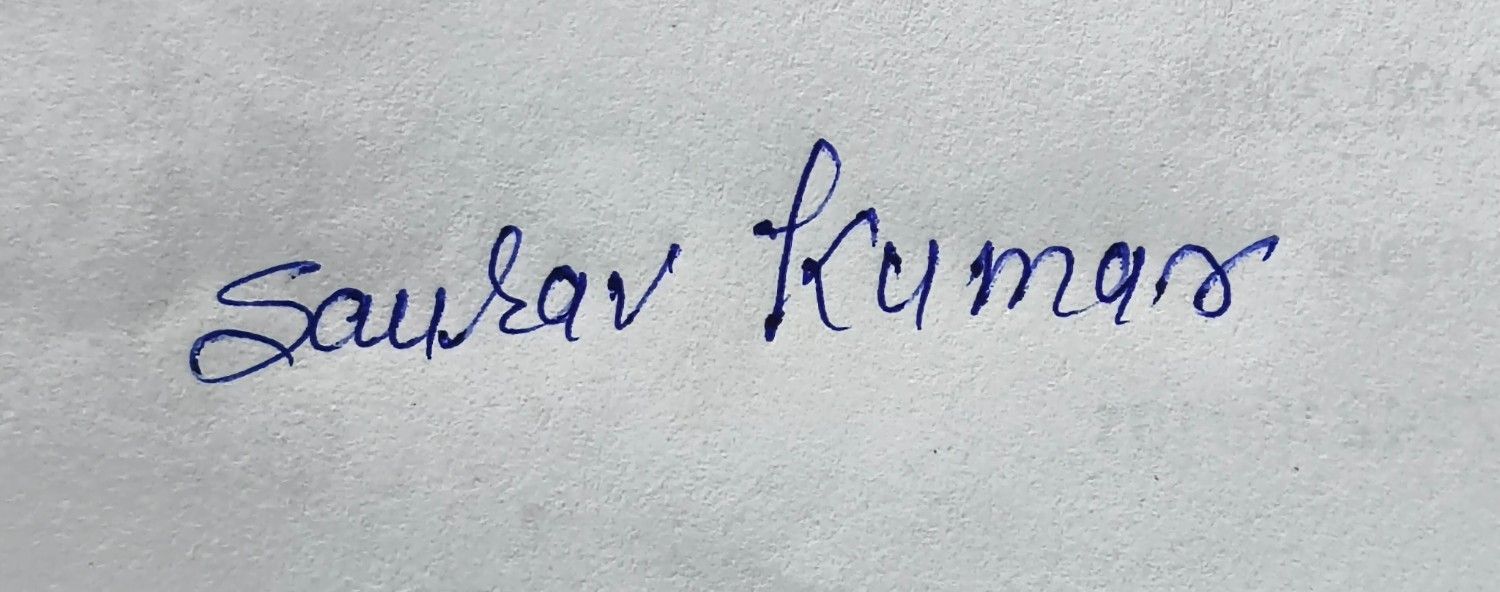 Saurav Kumar